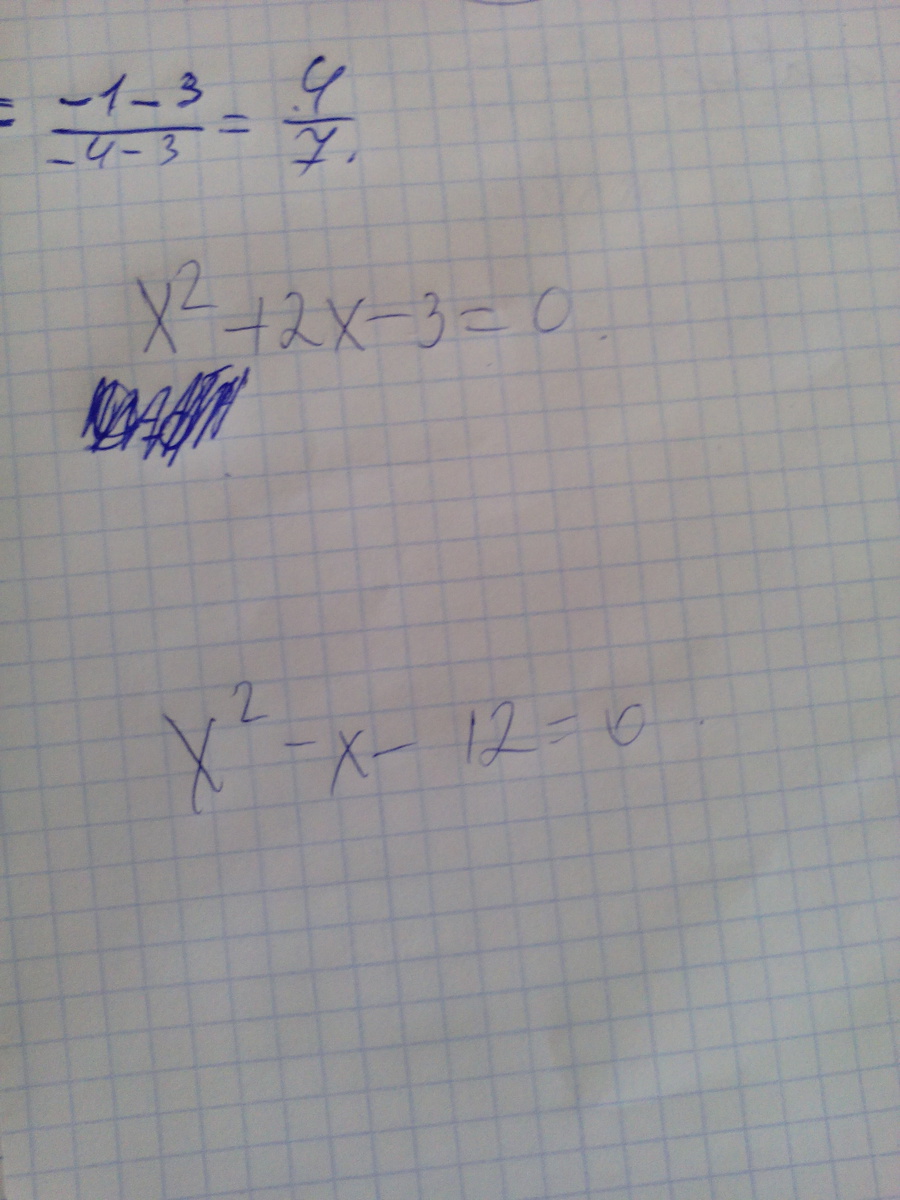 = -1-3/-4-3 = 4/7.
x² +2x-3=0.
x² -x- 12=0.